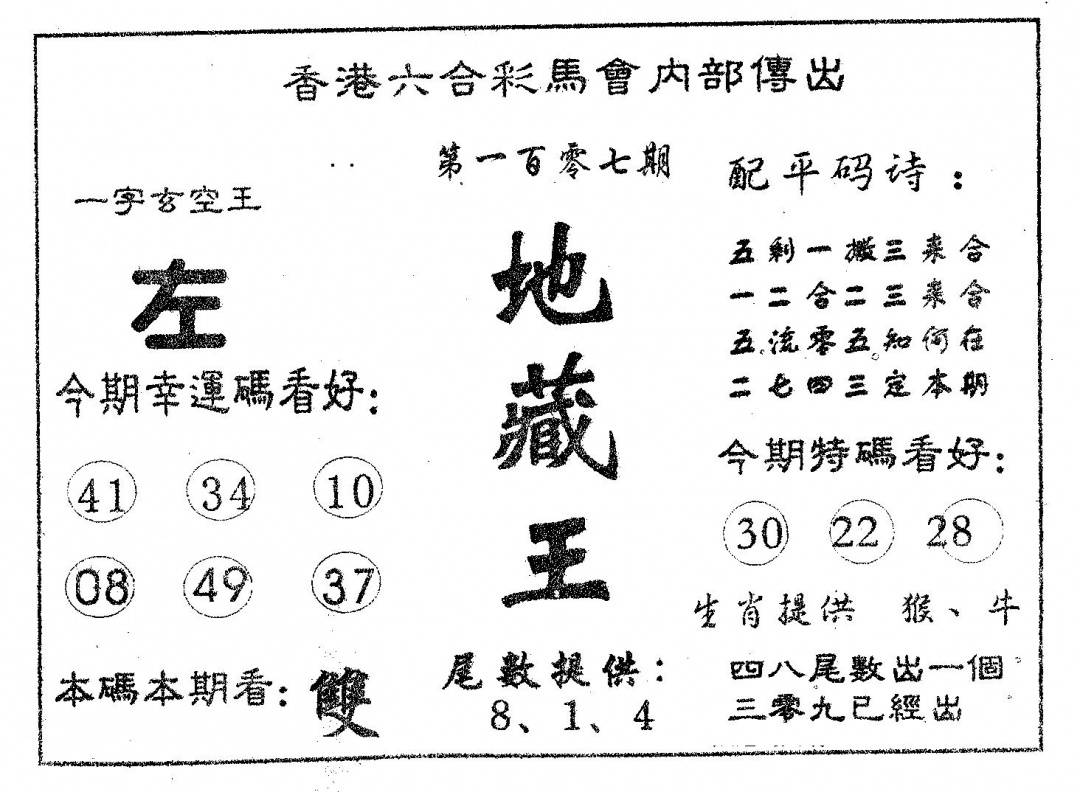 香港六合彩馬會内部傳出
第一百零七期
一字玄空王
左
今期幸運碼看好:
41 34 10
08 49 37
本碼本期看: 雙
地
藏
王
尾數提供:
8、1、4
配平码诗:
五剩一搬三来合
一二合二三来合
五流零五知何在
二七四三定本期
今期特碼看好:
30 22 28
生肖提供 猴、牛
四八尾數出一個
三零九已經出